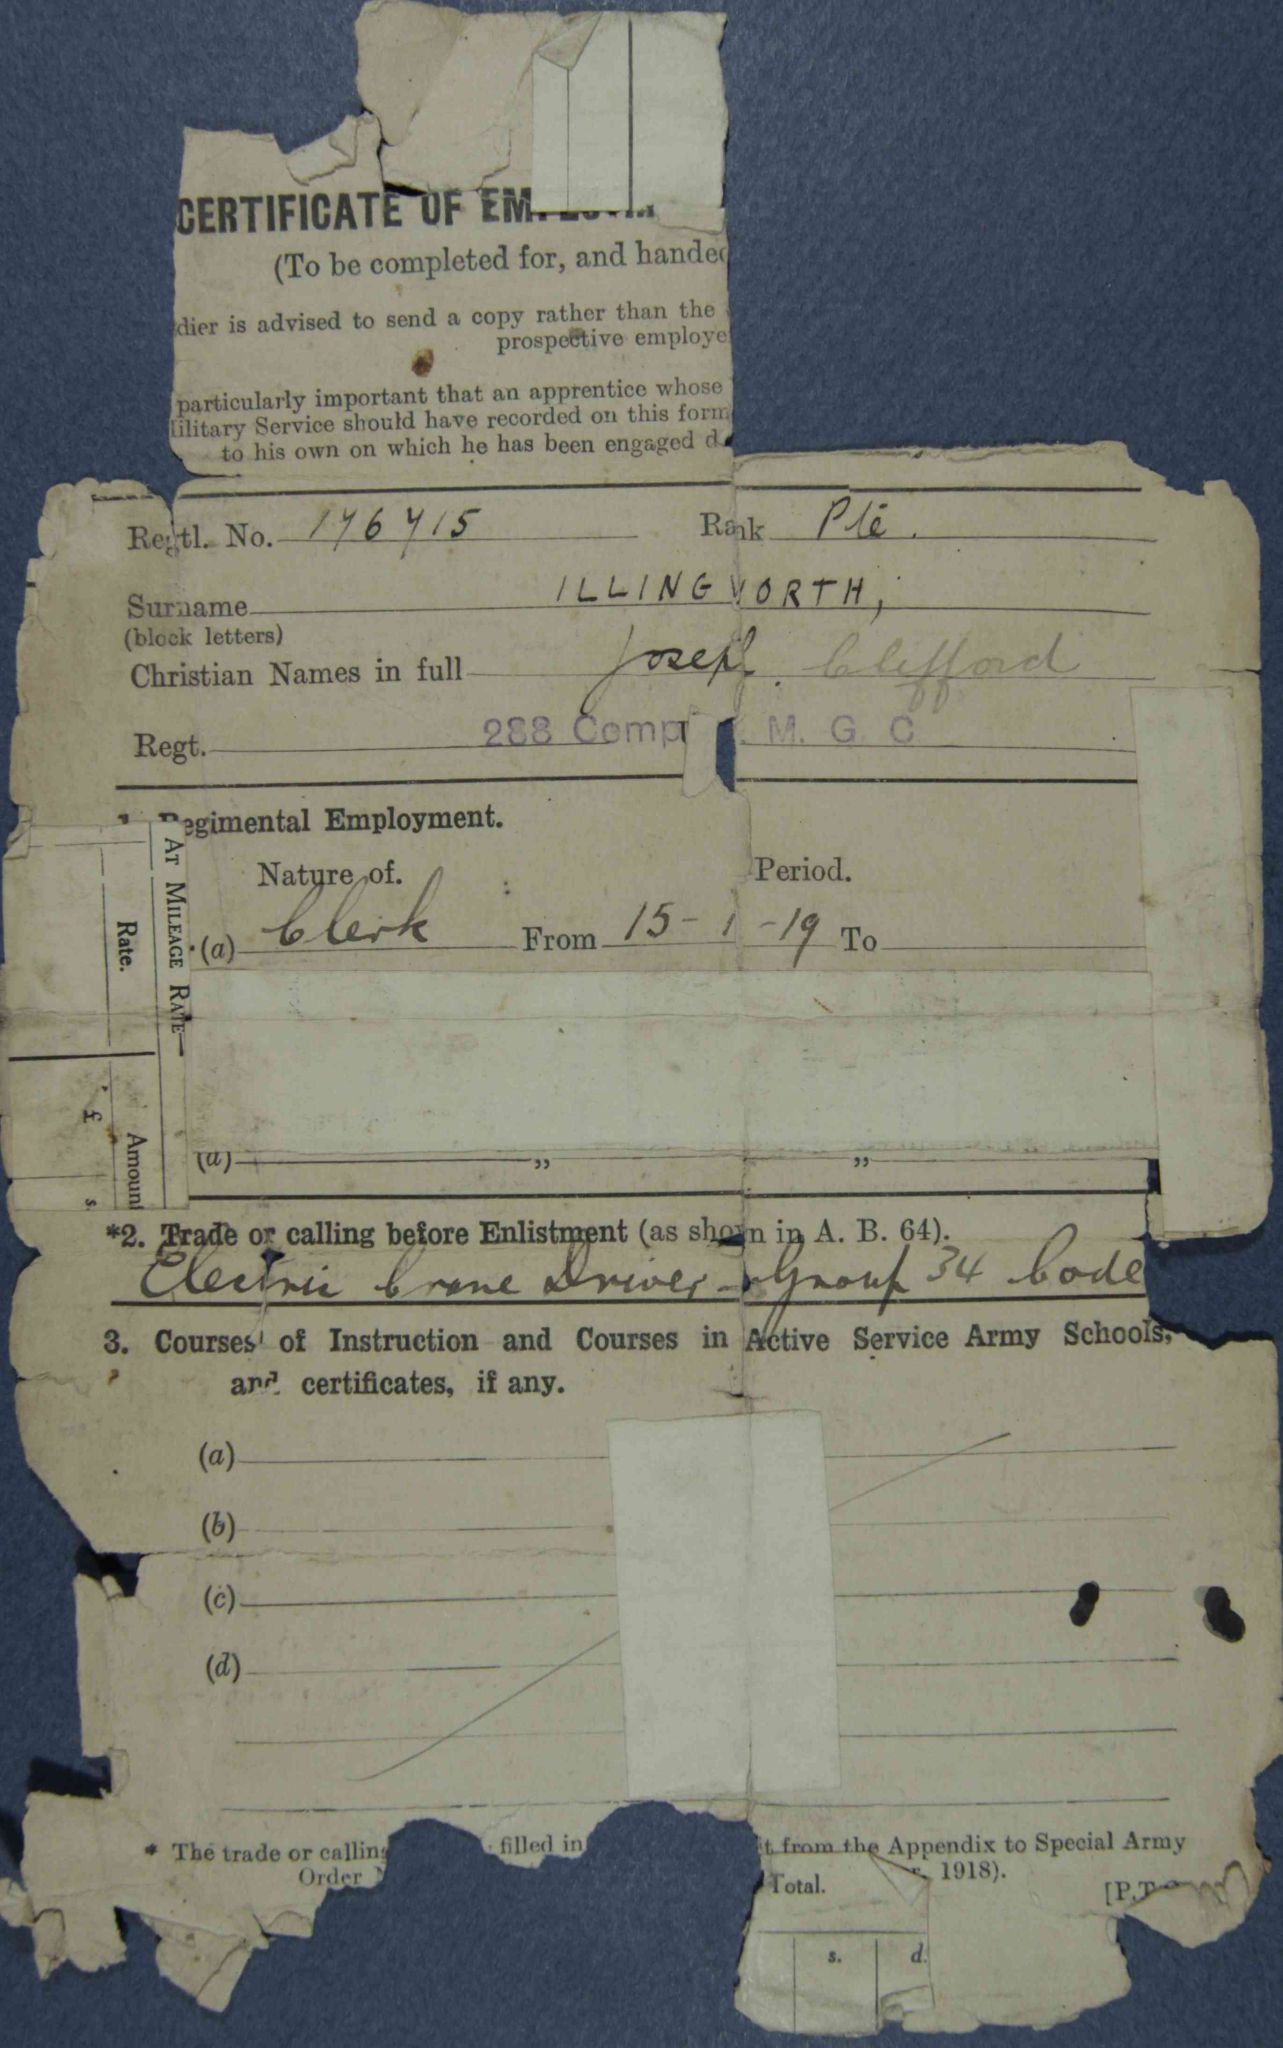 CERTIFICATE OF
(To be completed for, and handed
dier is advised to send a copy rather than the
prospective employe
particularly important that an apprentice whose
ilitary Service should have recorded on this form
to his own on which he has been engaged d
Regtl. No. 176715 Rank Pte.
Surname ILLINGWORTH,
(block letters)
Christian Names in full Joseph Clifford
Regt. 288 Comp M. G. C
1. Regimental Employment.
Nature of. Period.
(a) Clerk From 15-1-19 To
AT MILEAGE RATE
Rate.
Amount
£ s.
(d) „ „
*2. Trade or calling before Enlistment (as shown in A. B. 64).
Electric Crane Driver - Group 34 Code
3. Courses of Instruction and Courses in Active Service Army Schools,
and certificates, if any.
(a)
(b)
(c)
(d)
* The trade or calling filled in t from the Appendix to Special Army
Order r. 1918).
Total. [P.T.
s. d.